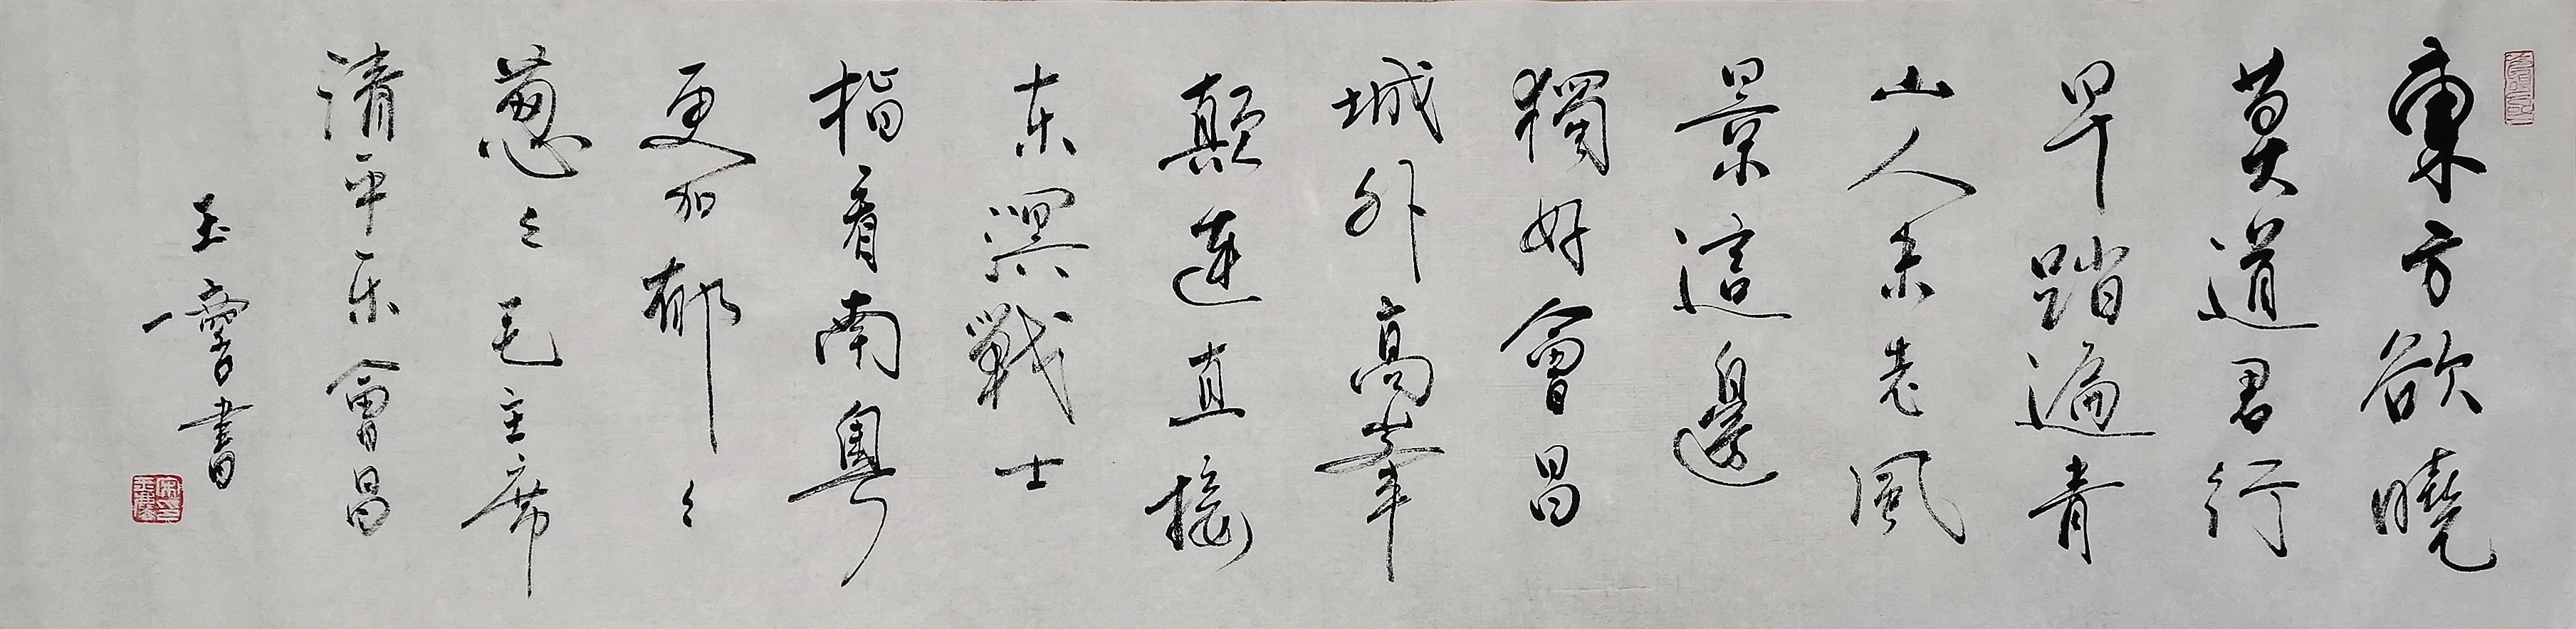 東方欲曉
莫道君行
早踏遍青
山人未老風
景這邊
獨好會昌
城外高峯
顛連直接
东溟戰士
指看南粤
更加郁〻
葱〻毛主席
清平乐會昌
玉書